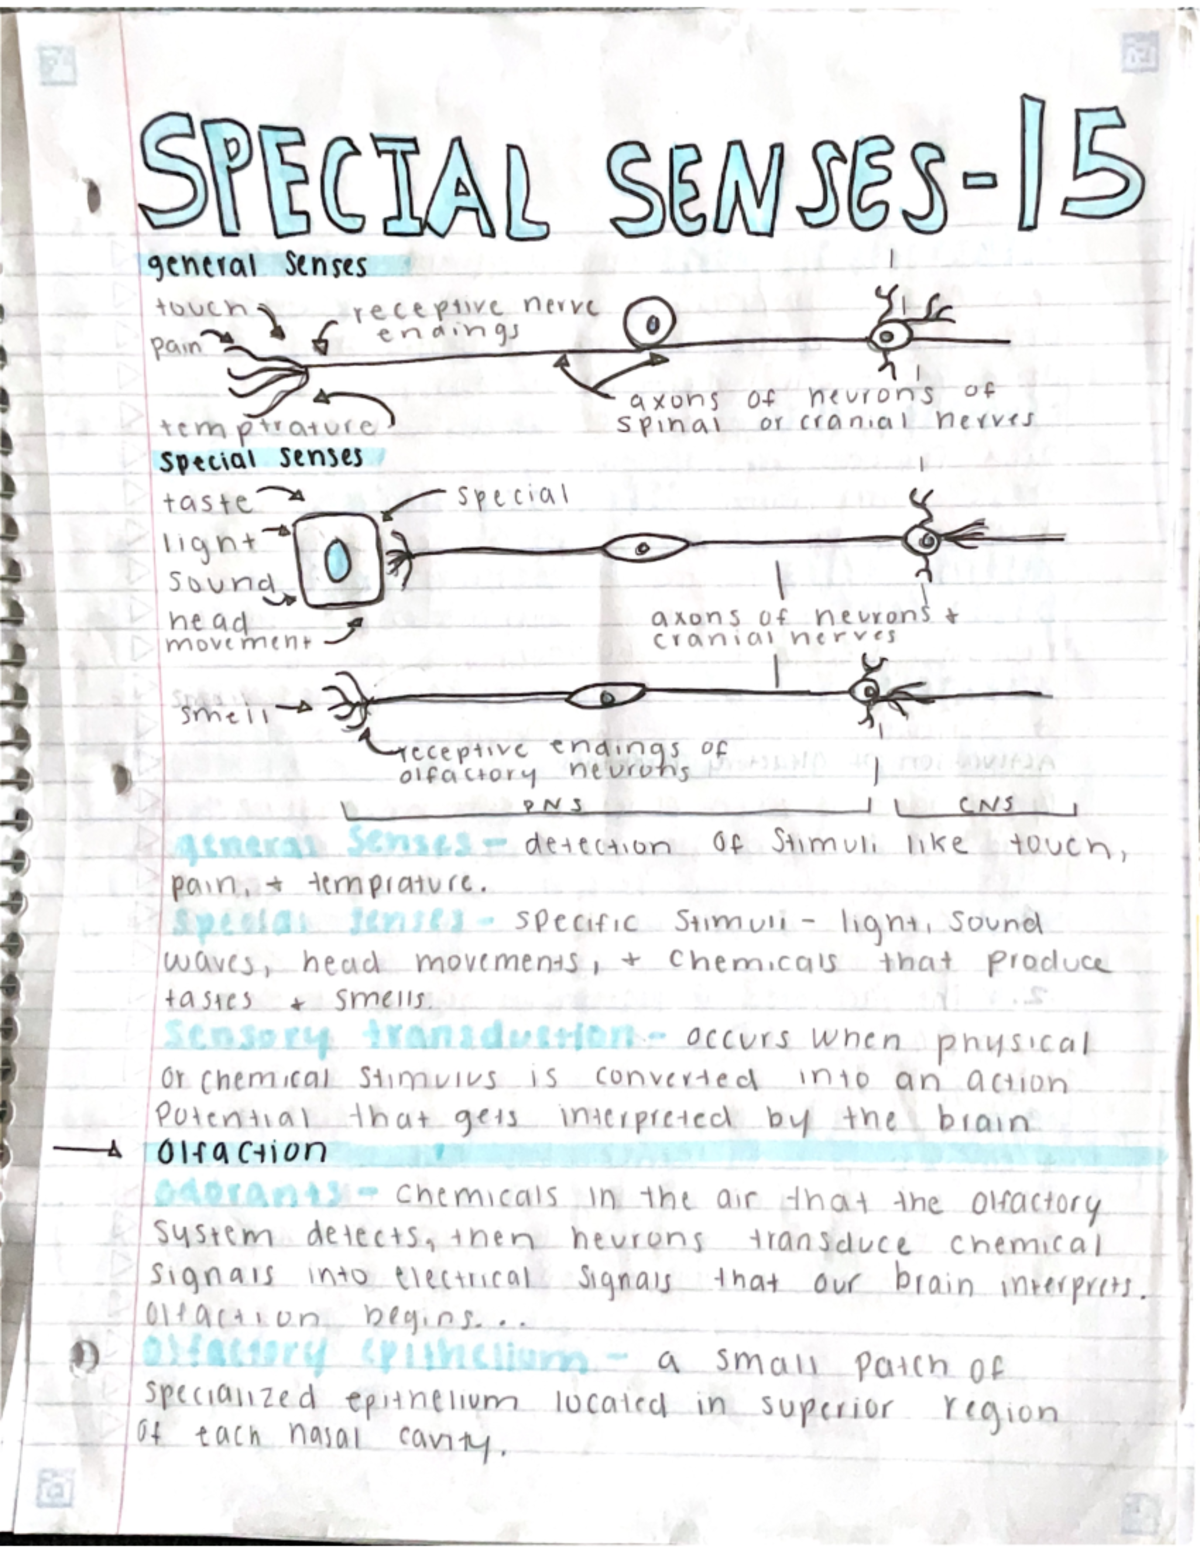 SPECIAL SENSES-15
general senses
touch
receptive nerve
endings
pain
axons of neurons of
spinal or cranial nerves
temptrature
special senses
taste
special
light
sound
head
movement
axons of neurons +
cranial nerves
smell
receptive endings of
olfactory neurons
PNS
CNS
general senses - detection of stimuli like touch,
pain, + temprature.
special senses - specific stimuli - light, sound
waves, head movements, + chemicals that produce
tastes + smells.
sensory transduction - occurs when physical
or chemical stimulus is converted into an action
potential that gets interpreted by the brain
olfaction
odorants - chemicals in the air that the olfactory
system detects, then neurons transduce chemical
signals into electrical signals that our brain interprets.
olfaction begins...
1 olfactory epithelium - a small patch of
specialized epithelium located in superior region
of each nasal cavity.